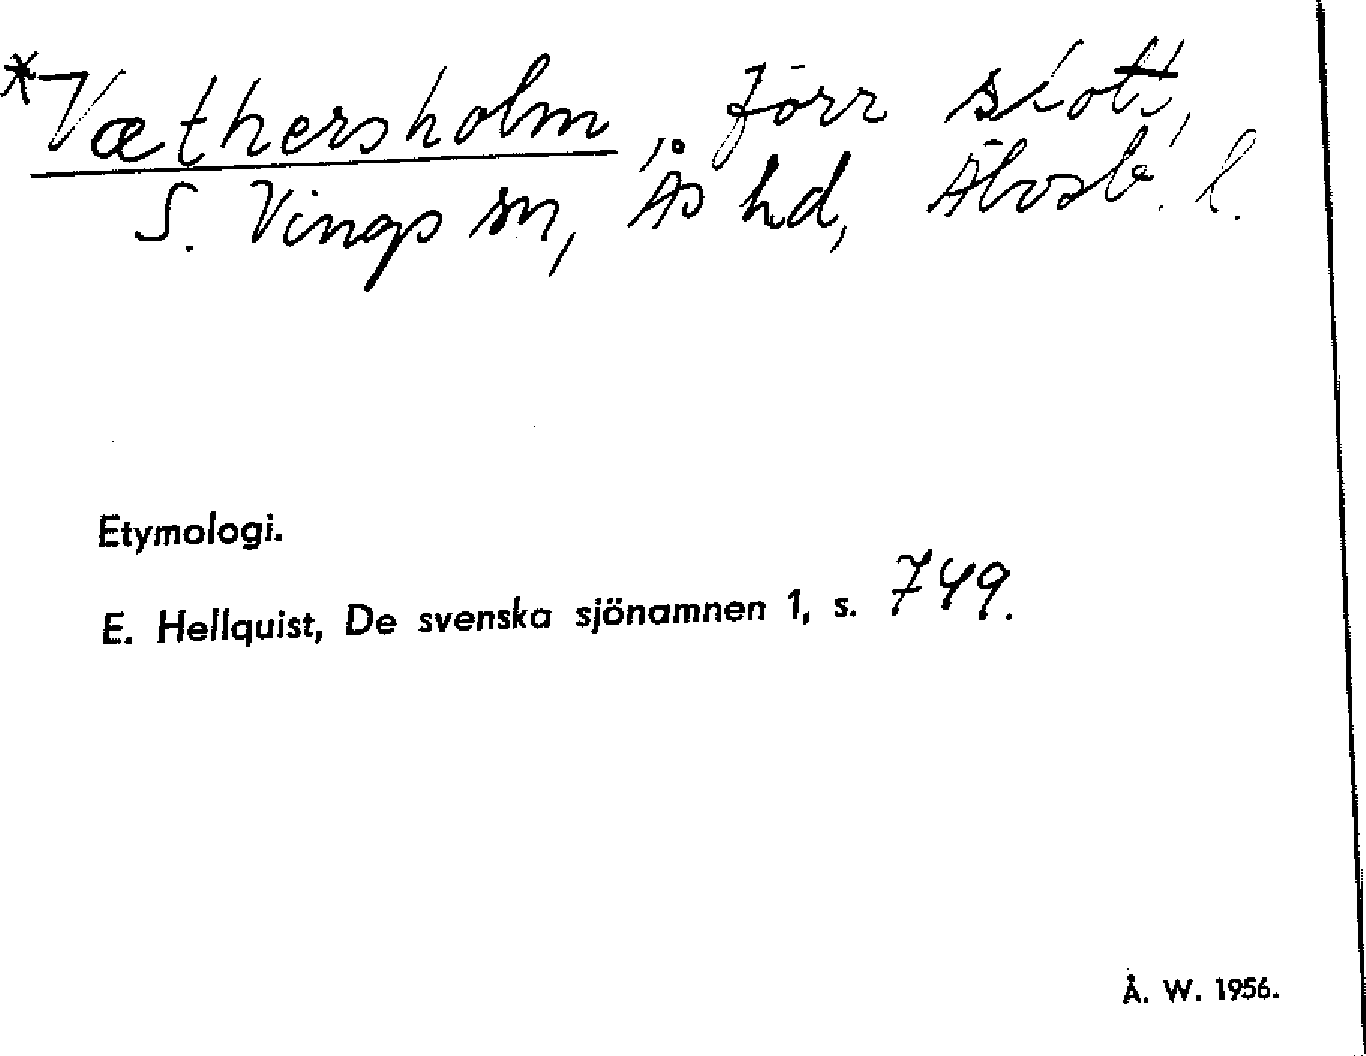 *Væthersholm, förr slott,
S. Vings sn, Ås hd, Älvsb. l.
Etymologi.
E. Hellquist, De svenska sjönamnen 1, s. 749.
Å. W. 1956.